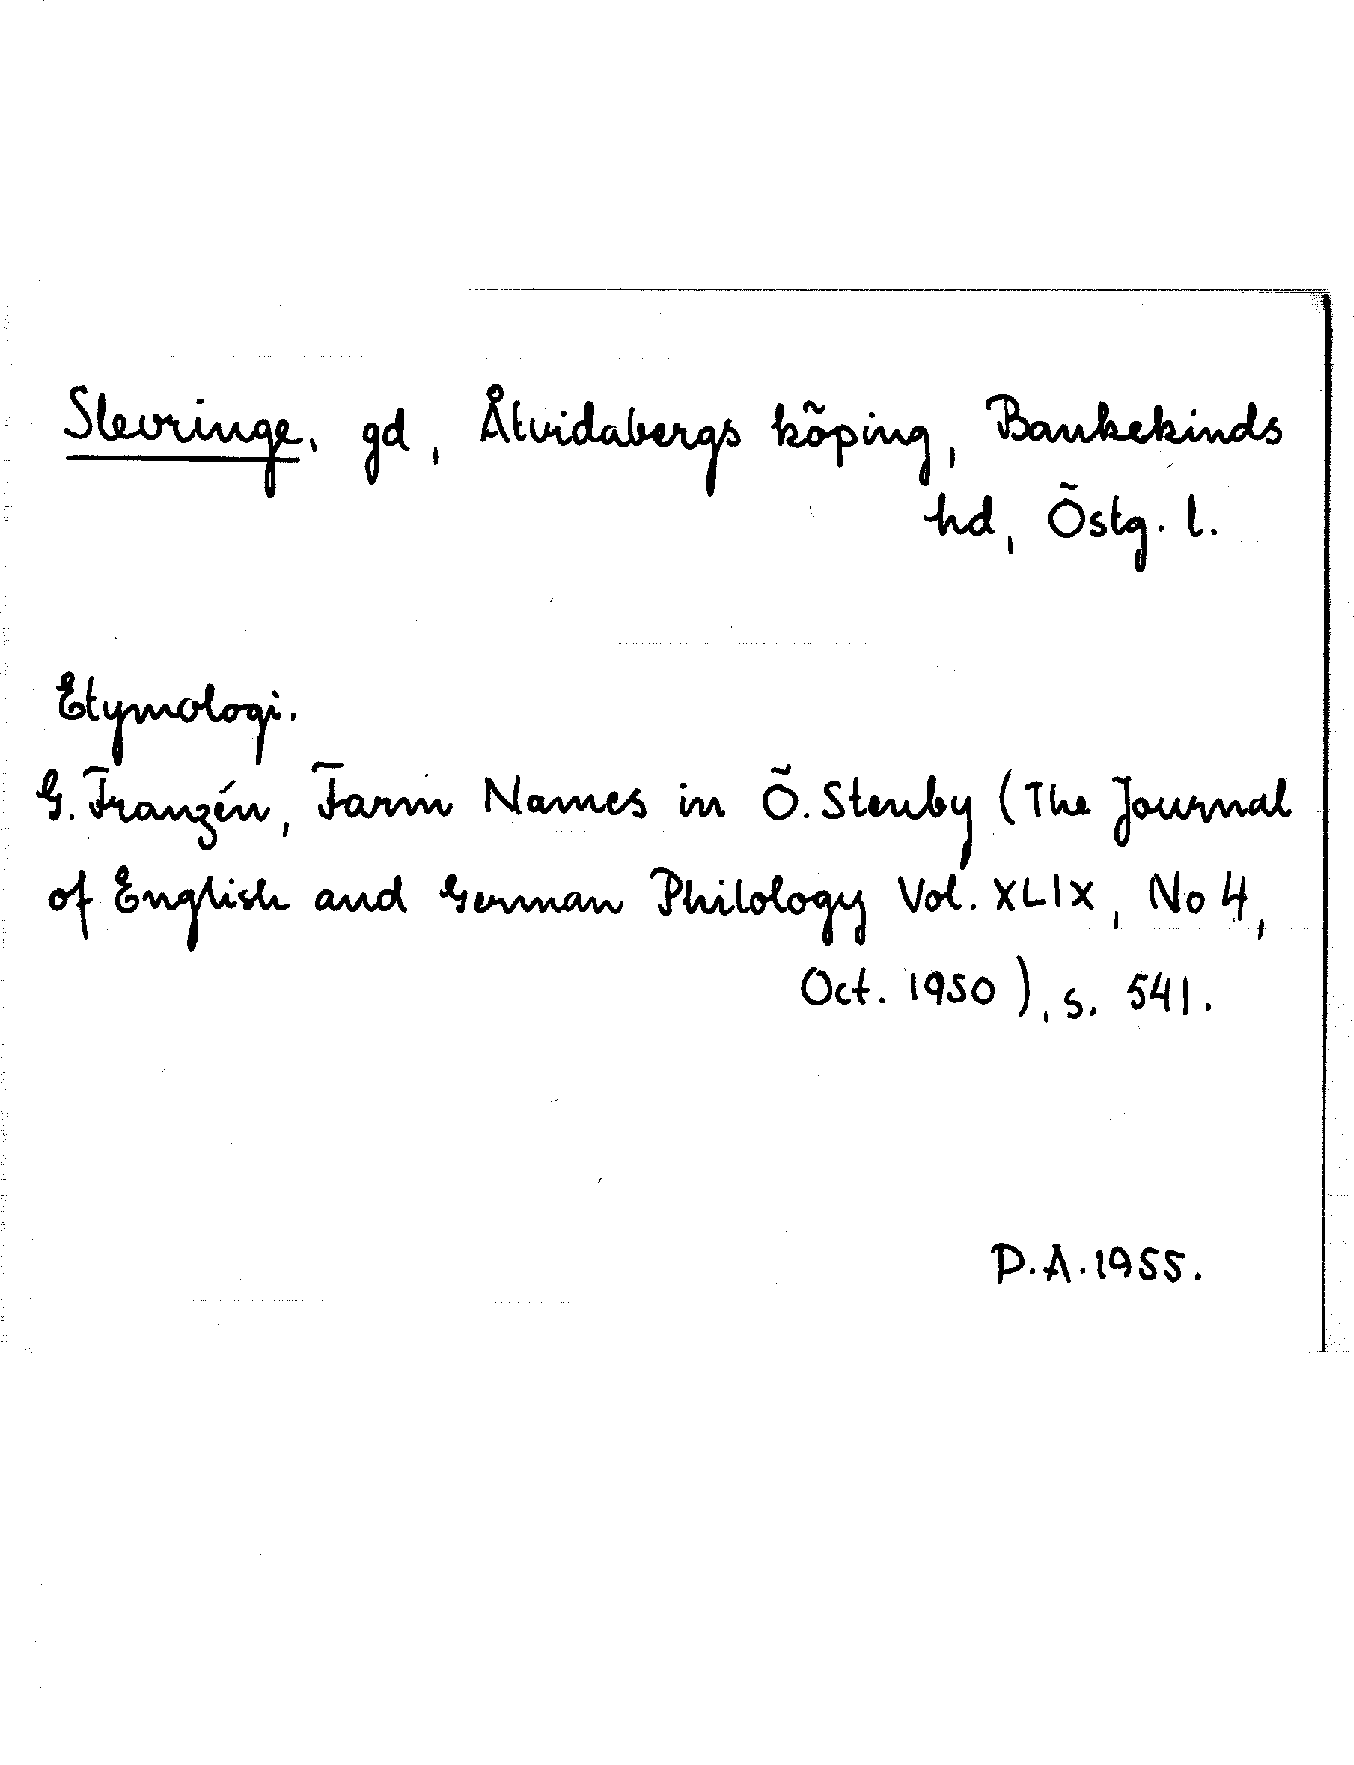 Slevringe, gd, Åtvidabergs köping, Bankekinds
hd, Östg. l.
Etymologi.
G. Franzén, Farm Names in Ö. Stenby (The Journal
of English and German Philology Vol. XLIX, No 4,
Oct. 1950), s. 541.
P.A. 1955.